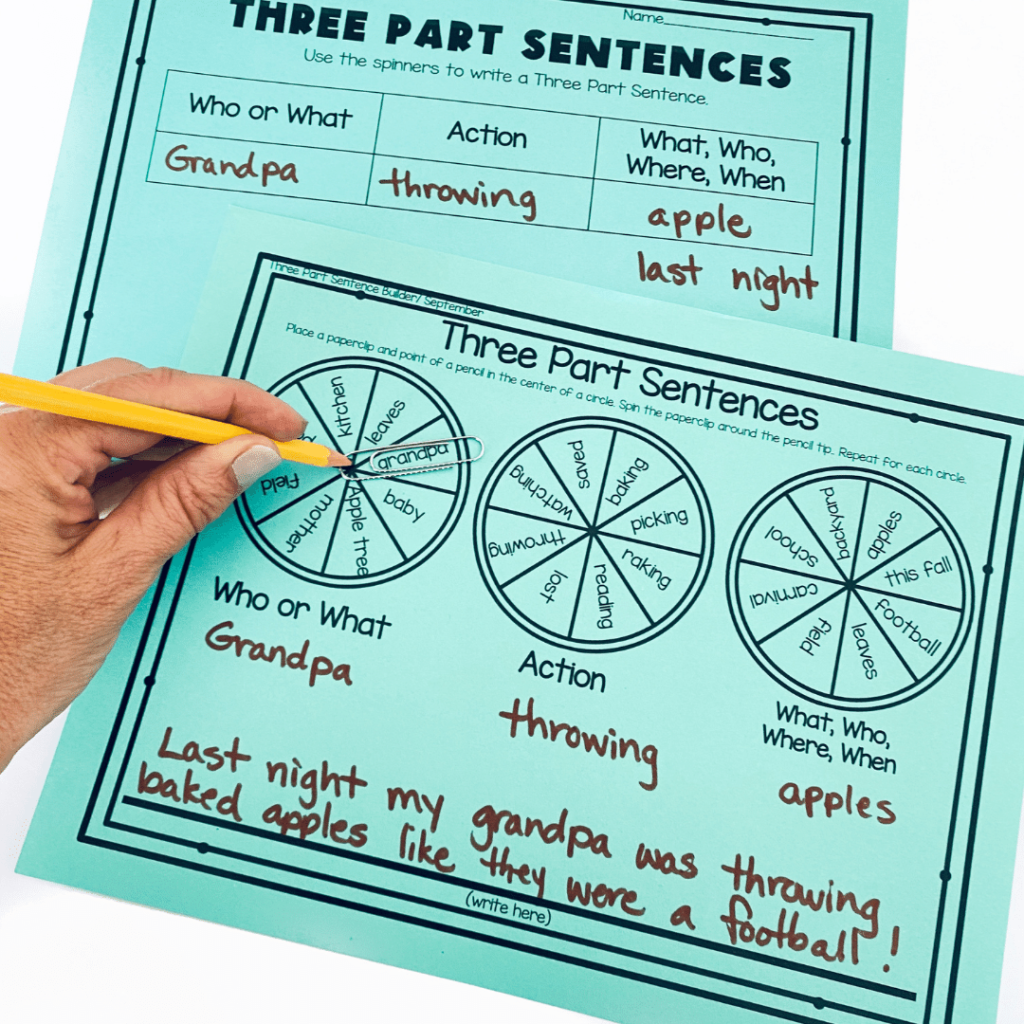 Name
THREE PART SENTENCES
Use the spinners to write a Three Part Sentence.
Who or What
Action
What, Who,
Where, When
Grandpa
throwing
apple
last night
Three Part Sentence Builder/ September
Three Part Sentences
Place a paperclip and point of a pencil in the center of a circle. Spin the paperclip around the pencil tip. Repeat for each circle.
kitchen
leaves
grandpa
baby
Apple tree
mother
field
saved
baking
picking
raking
reading
lost
throwing
watching
backyard
apples
this fall
football
leaves
field
carnival
school
Who or What
Grandpa
Action
throwing
What, Who,
Where, When
apples
Last night my grandpa was throwing
baked apples like they were a football!
(write here)